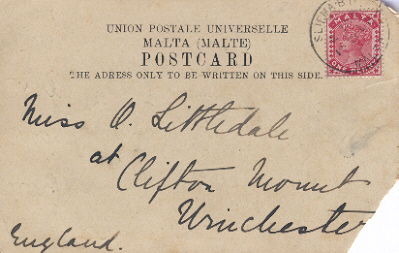 UNION POSTALE UNIVERSELLE
MALTA (MALTE)
POSTCARD
THE ADRESS ONLY TO BE WRITTEN ON THIS SIDE.
MALTA
Miss O. Littledale
at
Clifton Mount
Winchester
England.